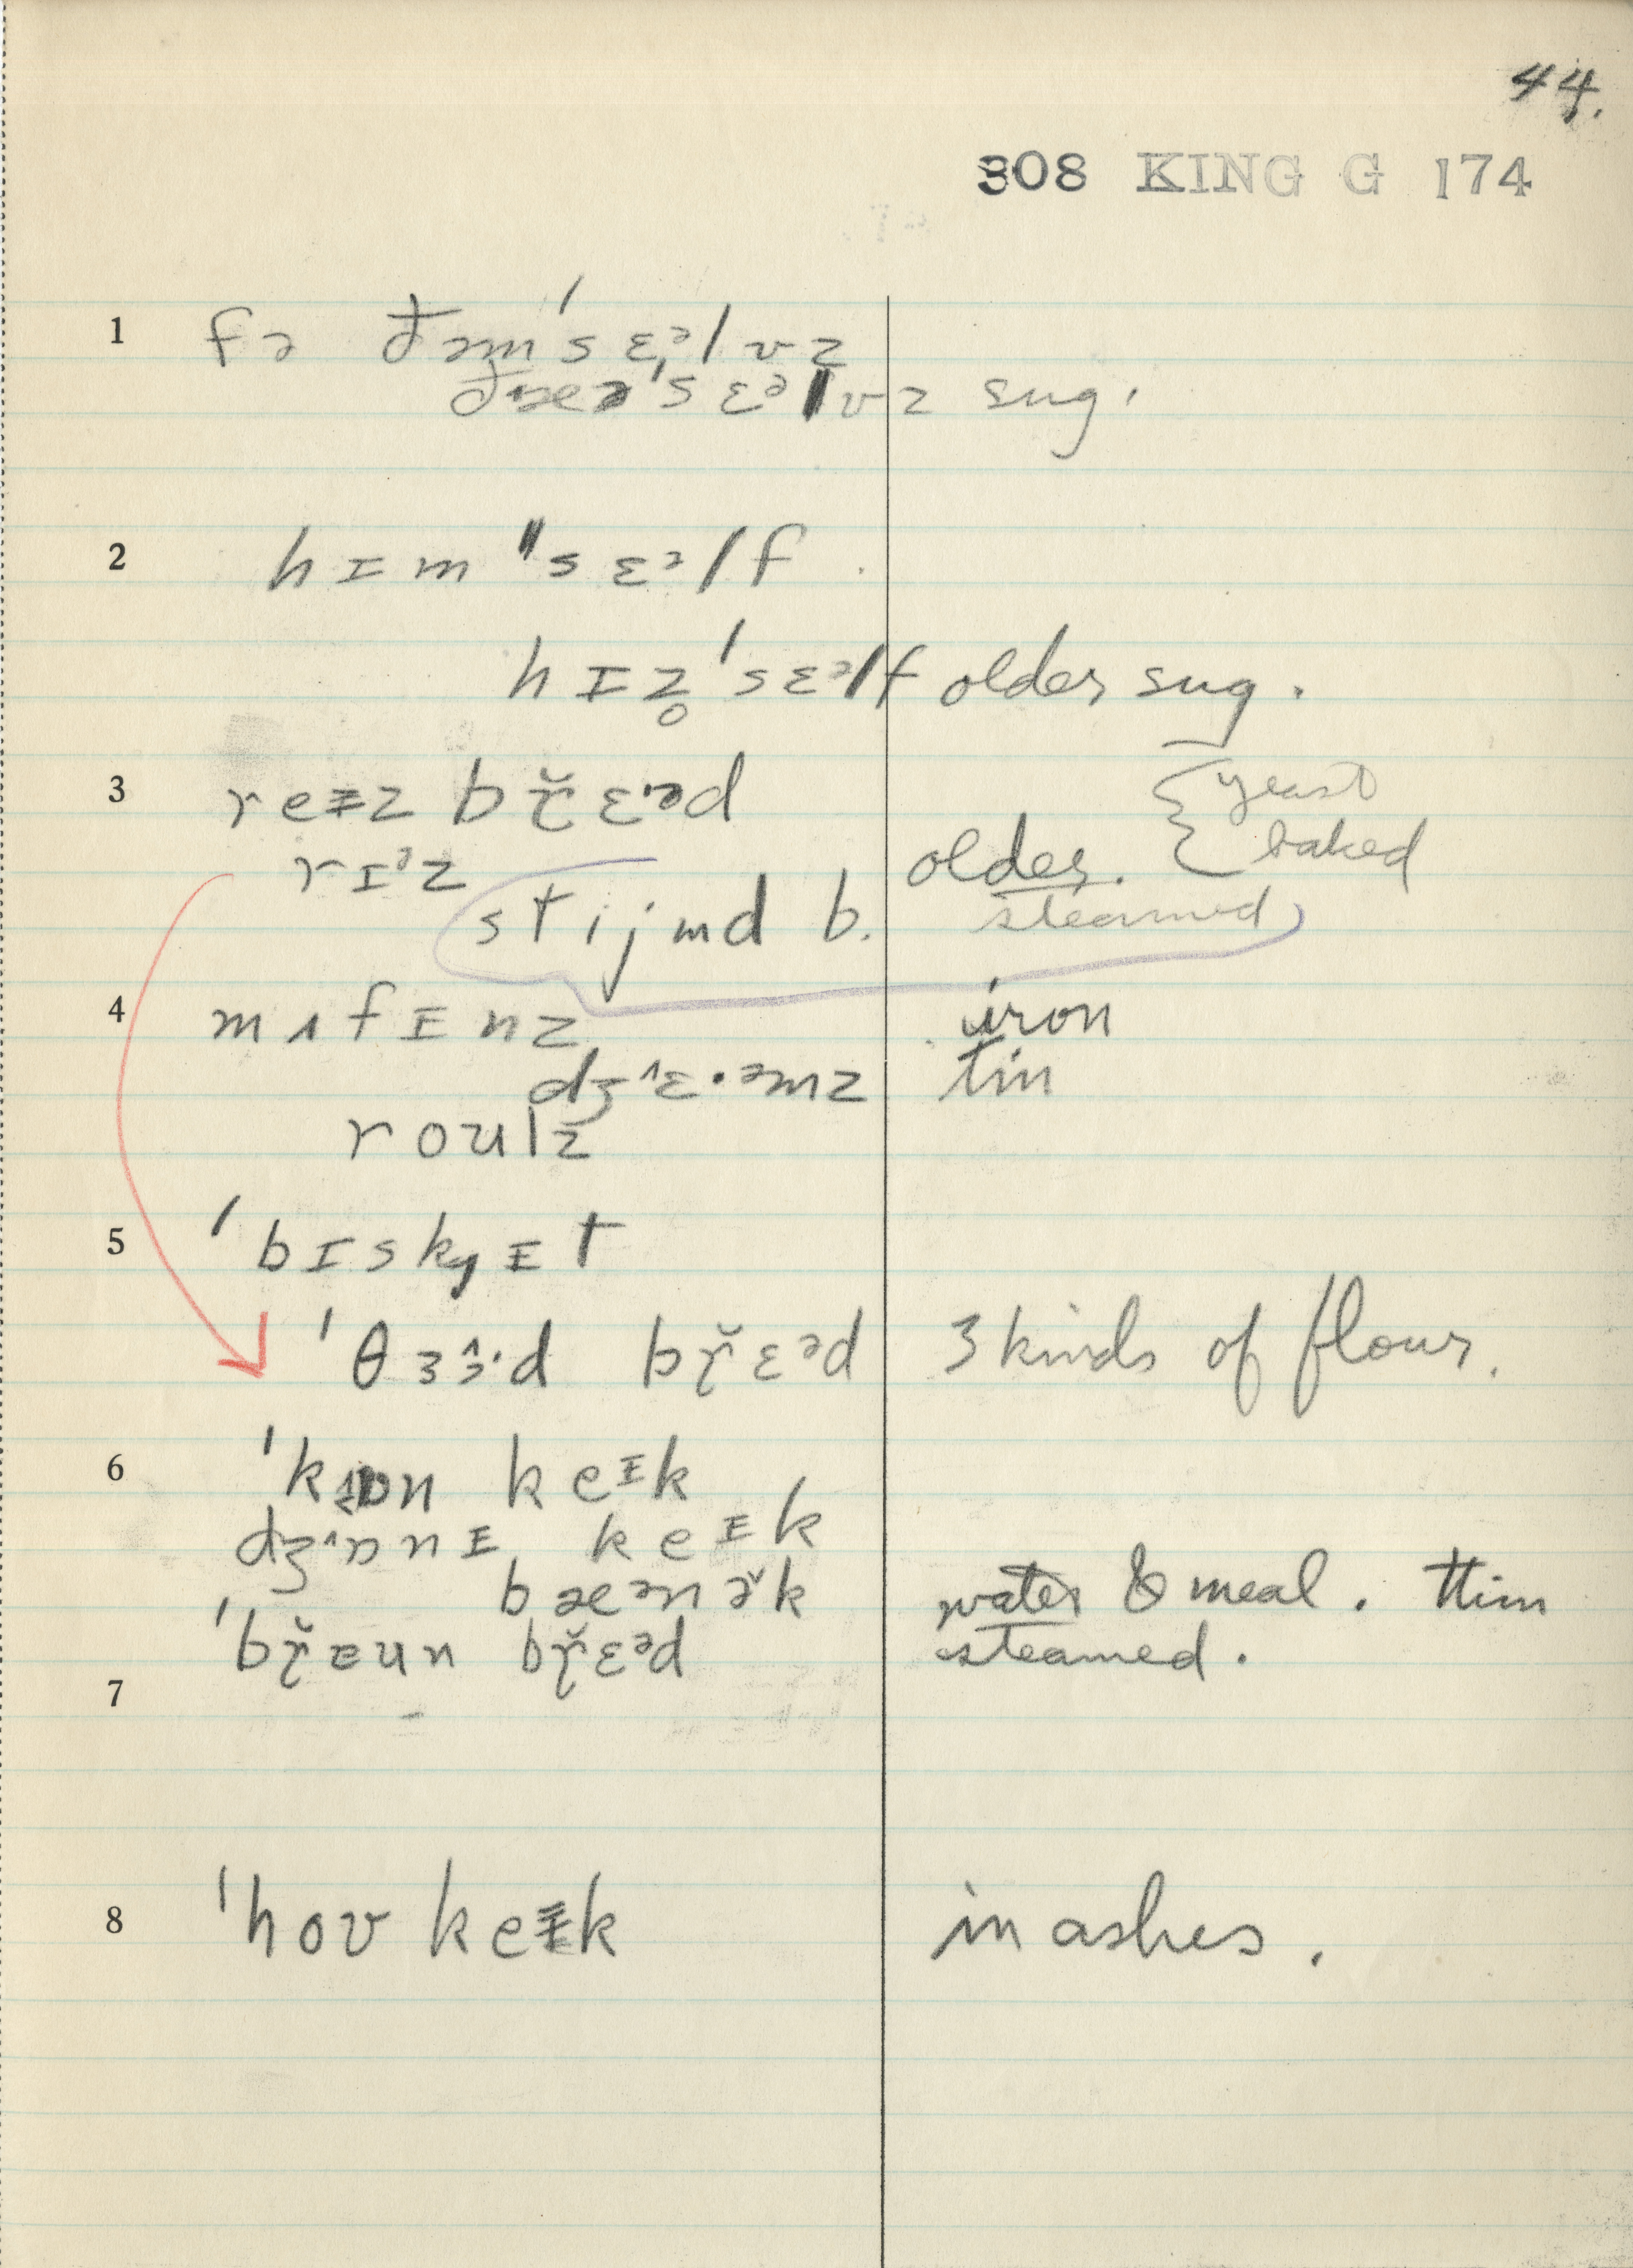 44.
308 KING G 174
1 fə ðəm'sɛəlvz
ðæə'sɛəlvz sug.
2 hɪm "sɛəlf
hɪz̥'sɛəlf older sug.
3 reɪz br̆ɛ·əd { yeast
rɪᵊz older. baked
stijmd b. steamed
4 mʌfɪnz iron
dʒ^ɛ·əmz tin
roulz
5 'bɪskɪt
'θɜɜ^·d br̆ɛəd 3 kinds of flour.
6 'kɒn keɪk
dʒ^ɒnɪ keɪk
bæənə̆k water & meal. thin
'br̆ɛun br̆ɛəd steamed.
7
8 'hov keɪk in ashes.